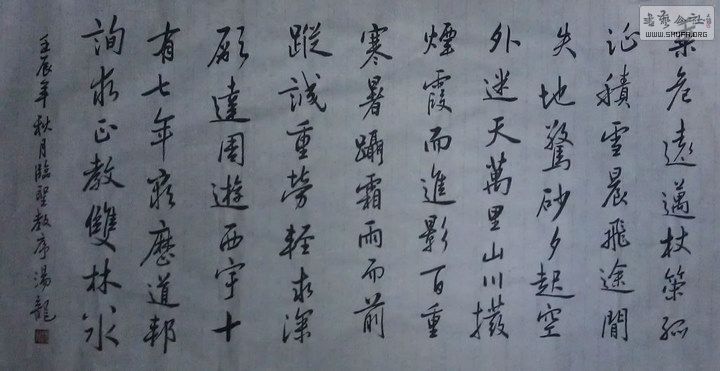 乘危遠邁杖策孤
征積雪晨飛途間
失地驚砂夕起空
外迷天萬里山川撥
煙霞而進影百重
寒暑躡霜雨而前
蹤誠重勞輕求深
願達周遊西宇十
有七年窮歷道邦
詢求正教雙林八水
壬辰年秋月臨聖教序湯龍
书艺公社
WWW.SHUFA.ORG